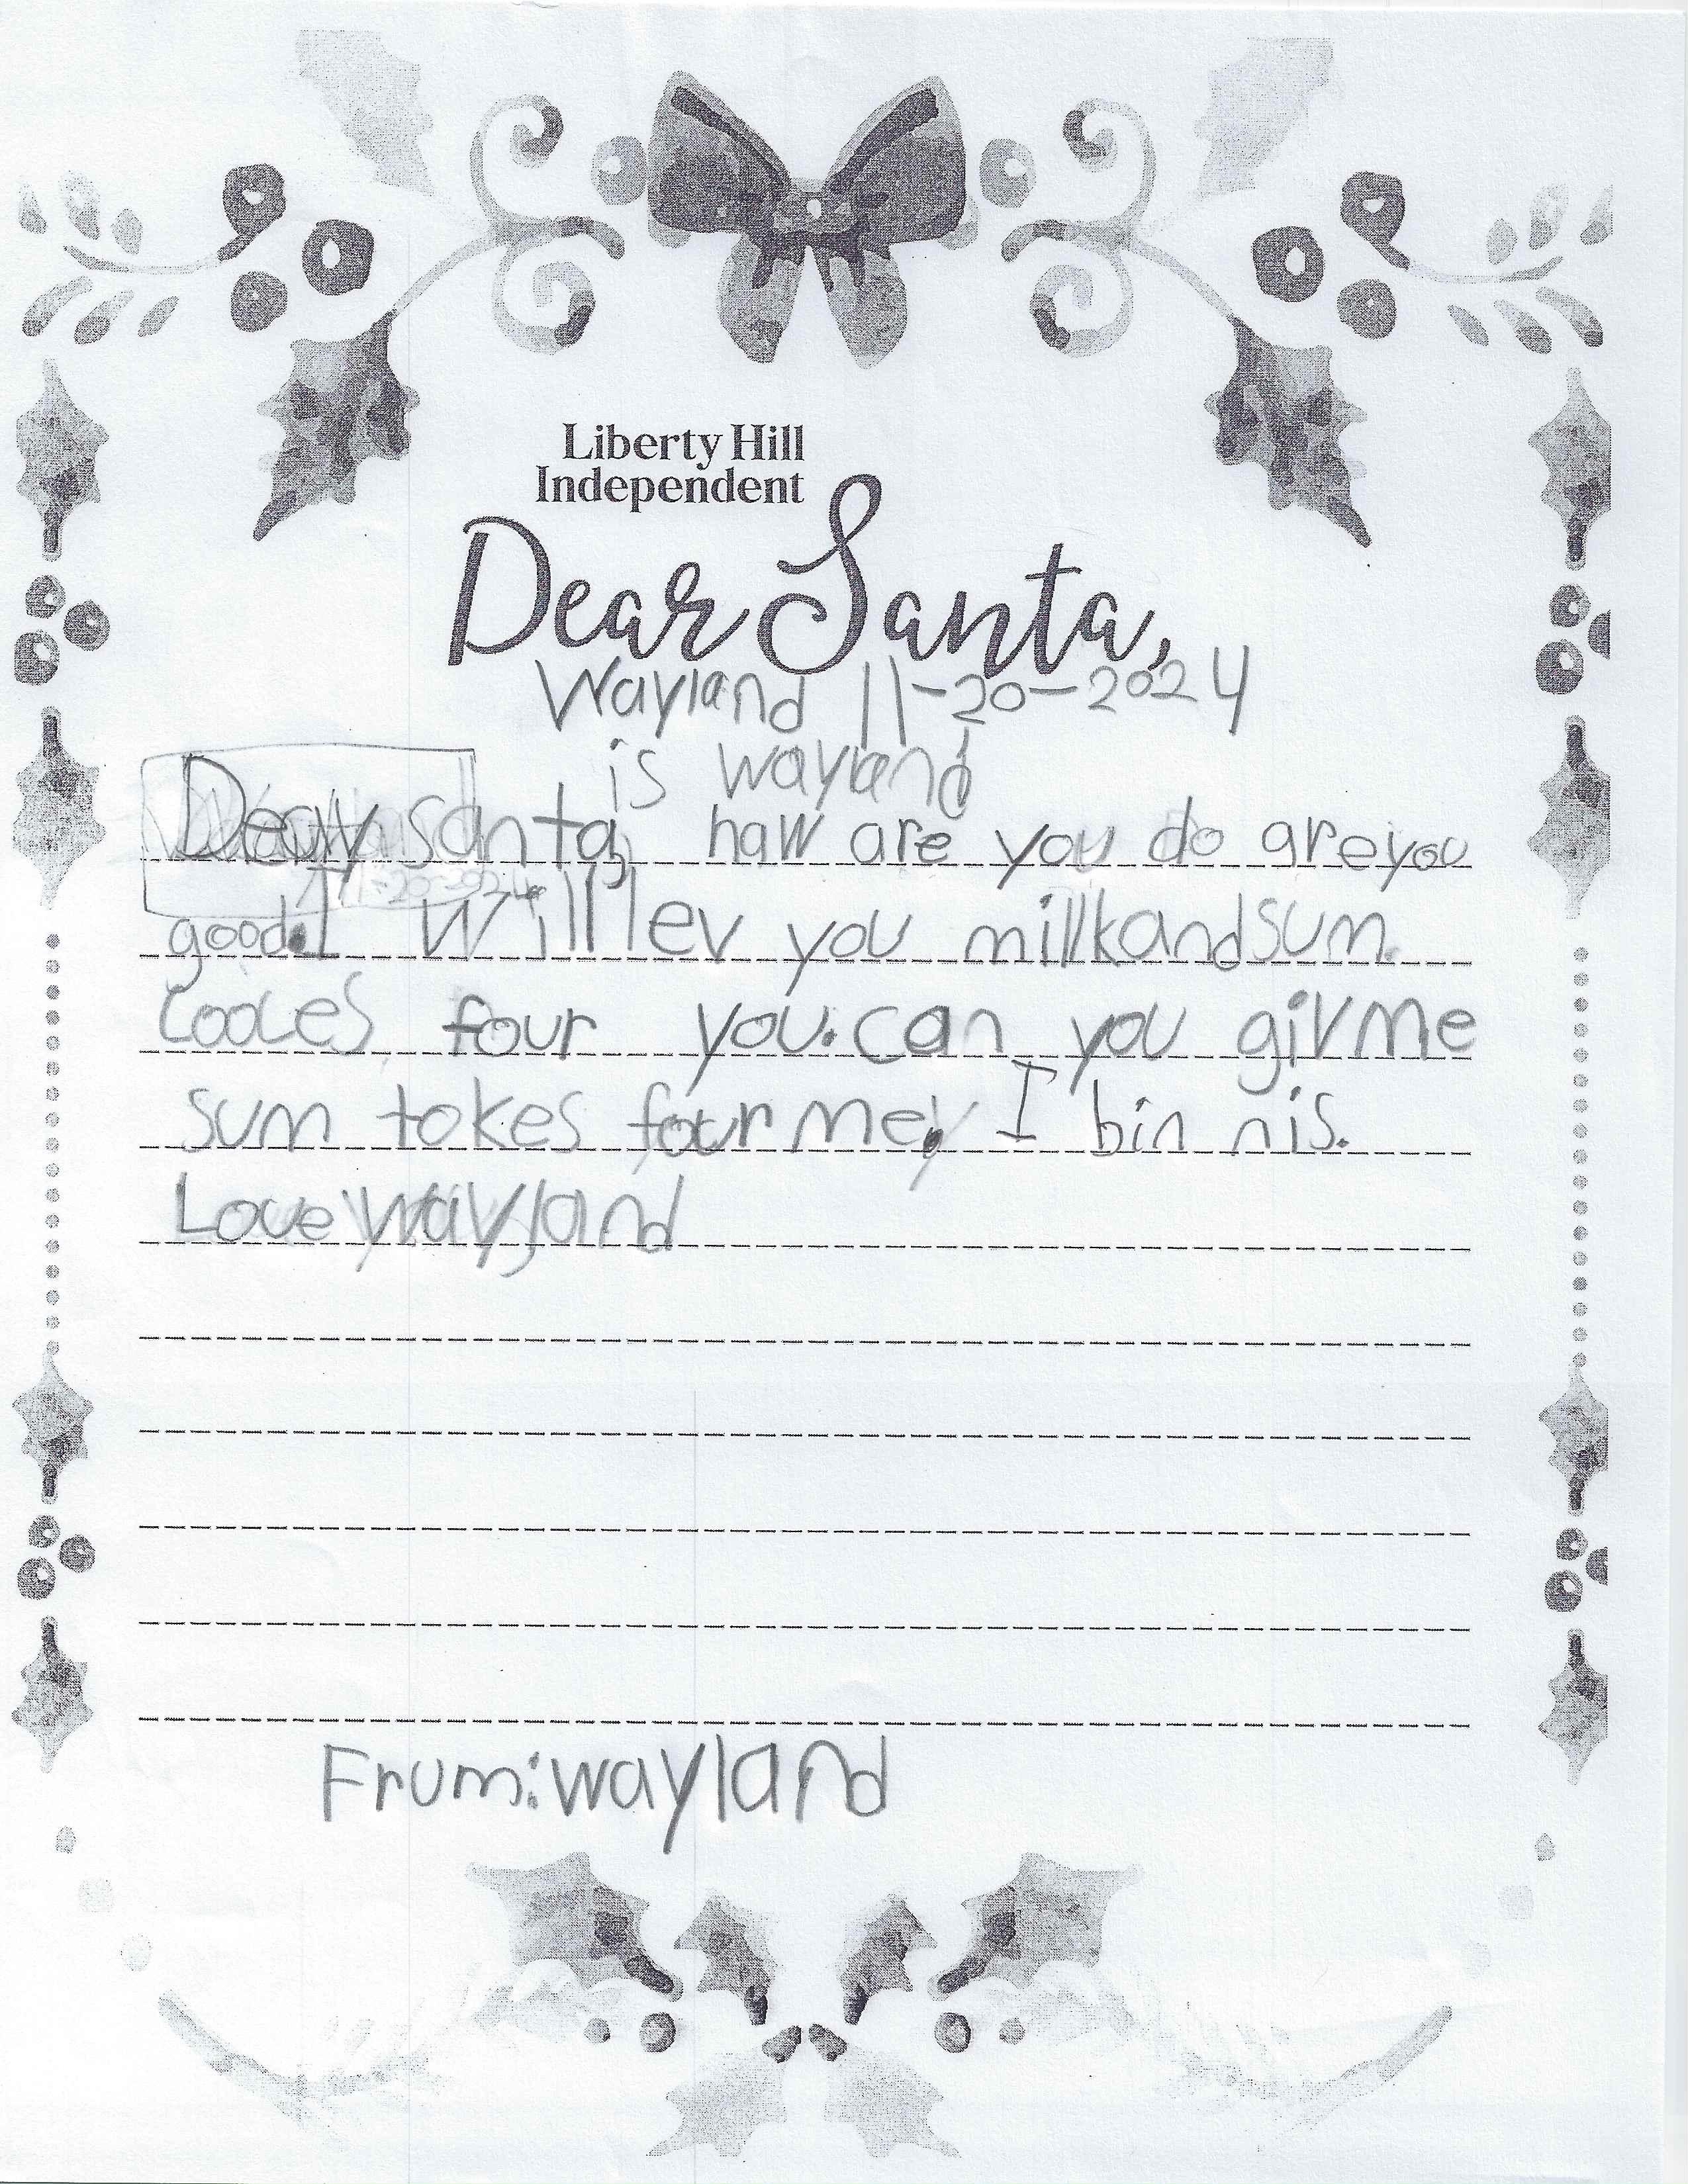 Liberty Hill
Independent
Dear Santa,
Wayland 11-20-2024
is wayland
Deay santa, haw are you do are you
good. I Will lev you millk and sum
cooces four you. can you giv me
sum tokes four me. I bin nis.
Love wayland
Frum: wayland